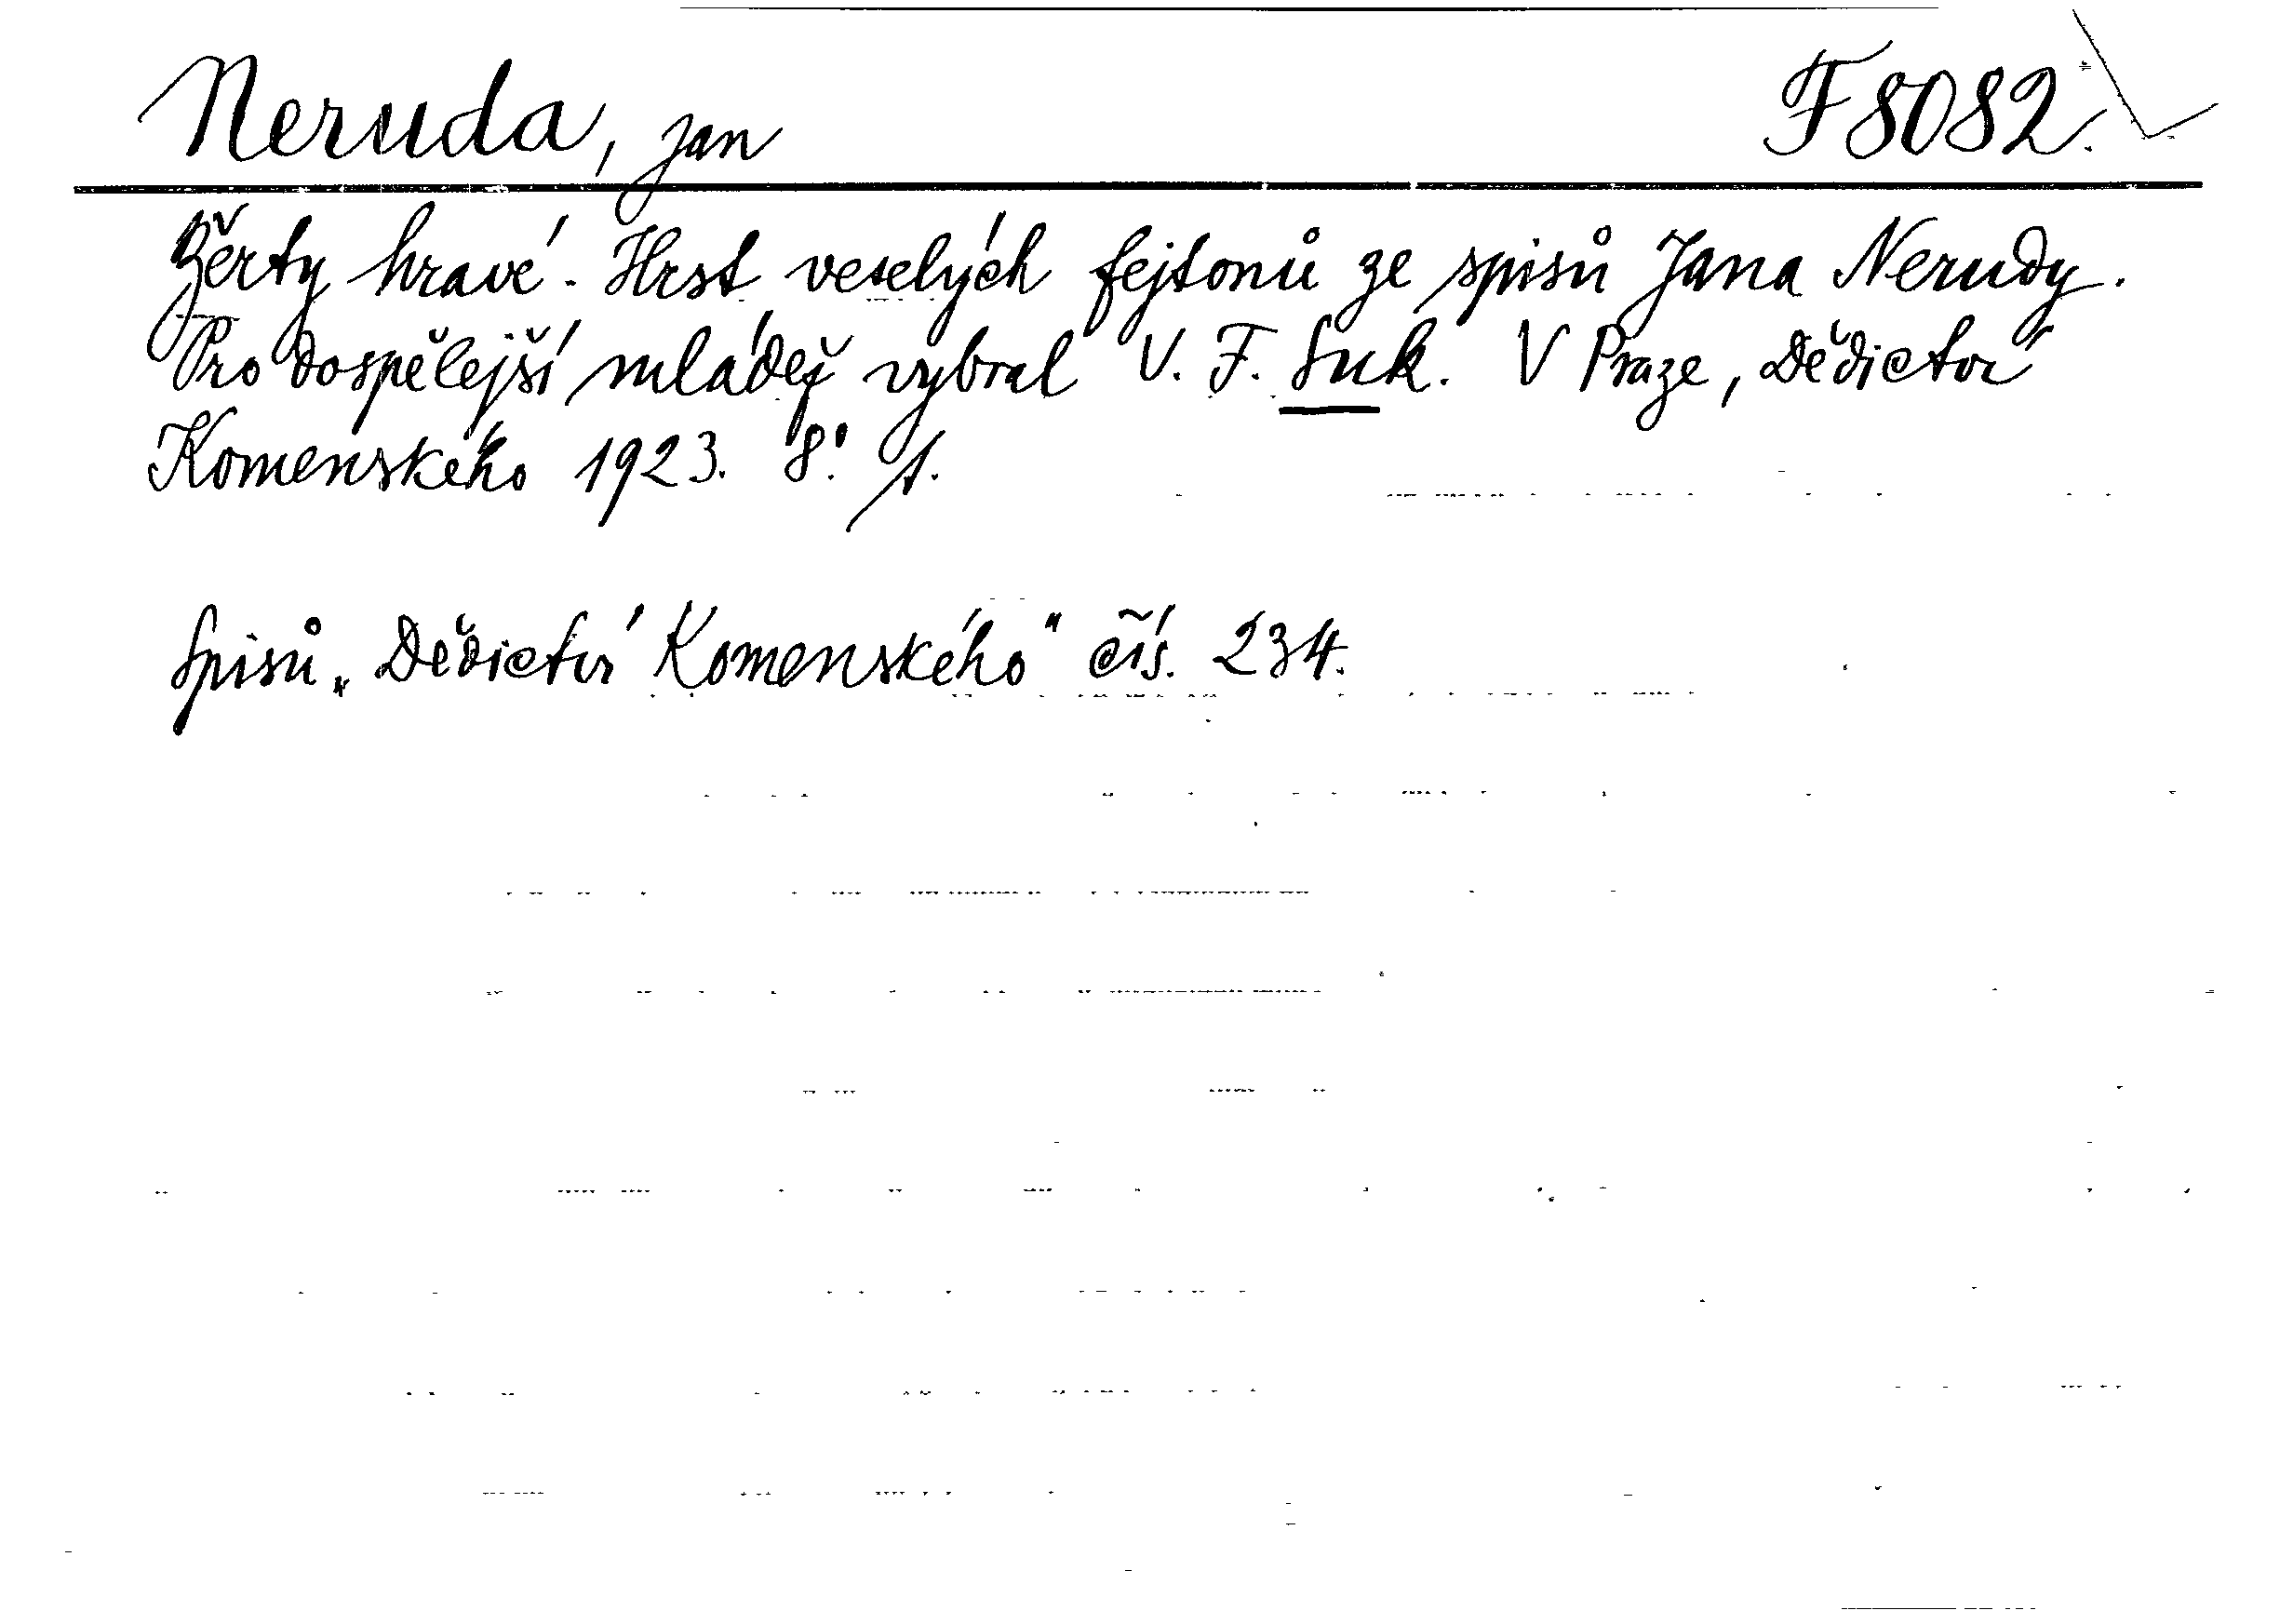 Neruda, Jan F 8082.
Žerty hravé. Hrst veselých fejtonů ze spisů Jana Nerudy.
Pro dospělejší mládež vybral V. F. Suk. V Praze, Dědictví
Komenského 1923. 8°. s.
Spisů „Dědictví Komenského" čís. 234.